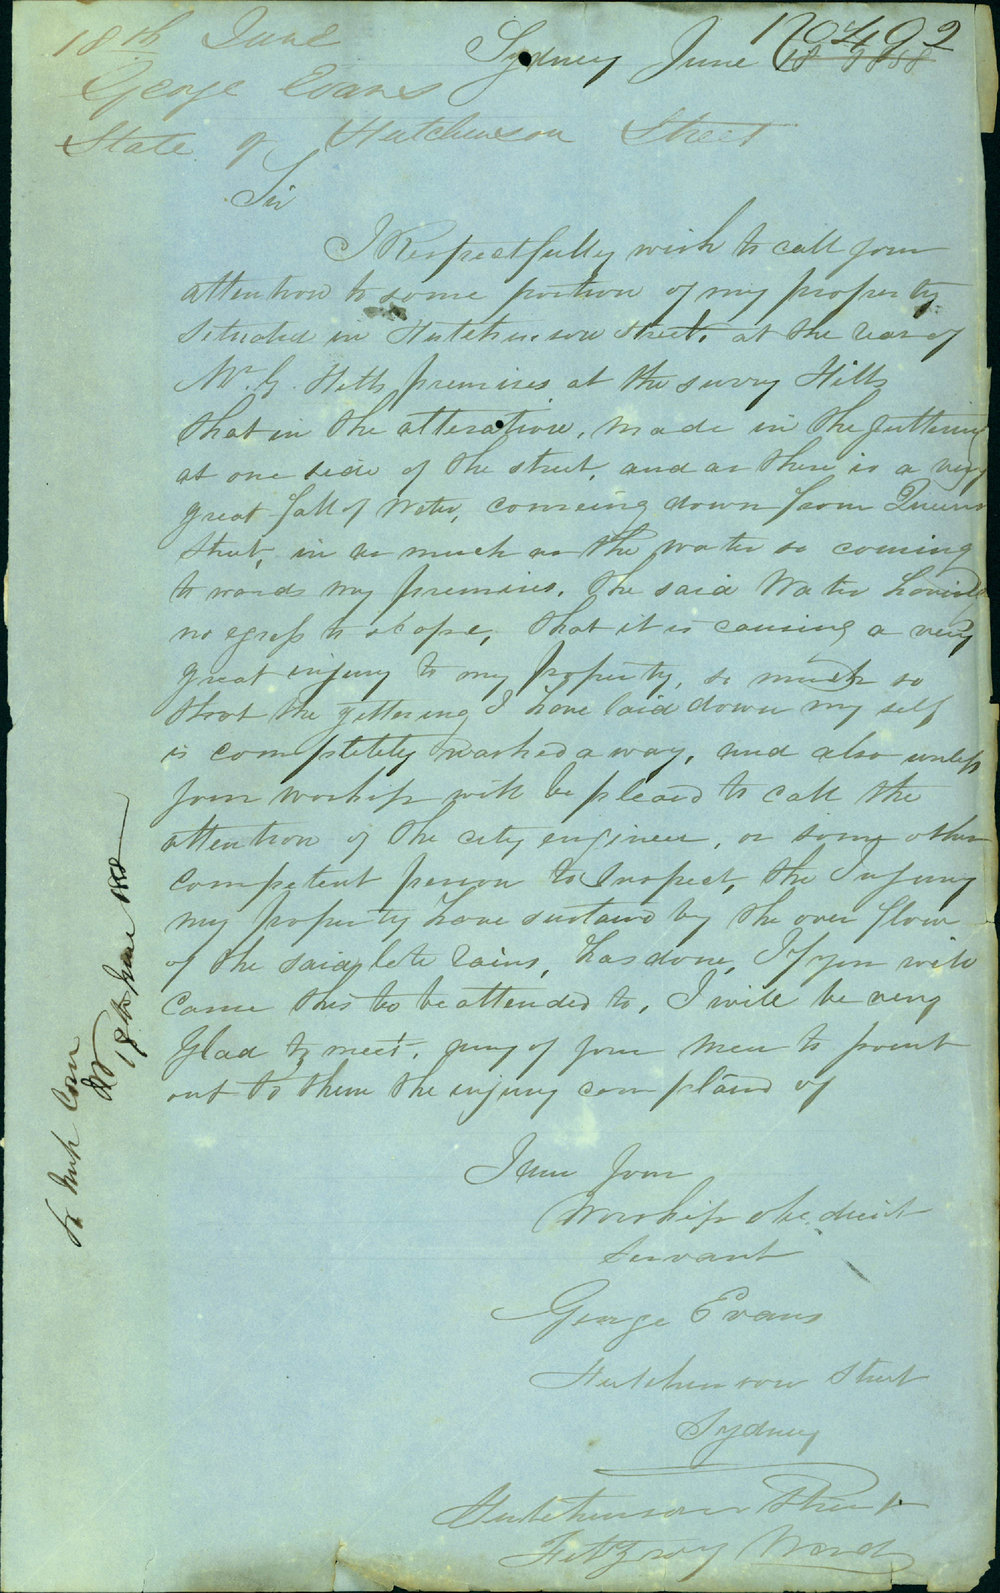 18th June
George Evans
State of Hutchinson Street
No 492
Sydney June 18 1858
Sir
I Respectfully wish to call your
attention to some portion of my property
situated in Hutchinson Street, at the rear of
Mr. G. Hills premises at the surry Hills
that in the alteration, made in the guttering
at one side of the street, and as there is a very
great fall of Water, comeing down from Queens
Street, in as much as the water so coming
to wards my premises, the said Water having
no egress to escape, that it is causing a very
great injury to my Property, so much so
that the guttering I have laid down my self
is completely washed away, and also unless
your worship will be pleasd to call the
attention of the city engineer, or some other
competent person to Inspect, the Injury
my property have sustaind by the over flow
of the said late rains, has done, If you will
cause this to be attended to, I will be very
Glad to meet, any of your Men to point
out to them the injury complaind of
I am your
Worship obedient
Servant
George Evans
Hutchinson Street
Sydney
Hutchinson Street
Fitzroy Ward
To Imp Com
18th June 1858